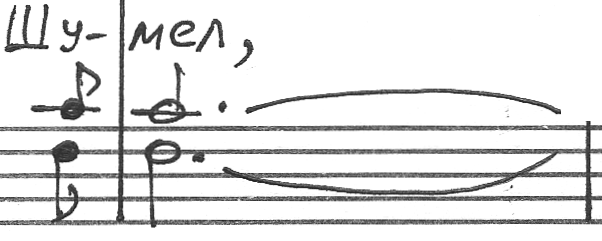 Шу-мел,